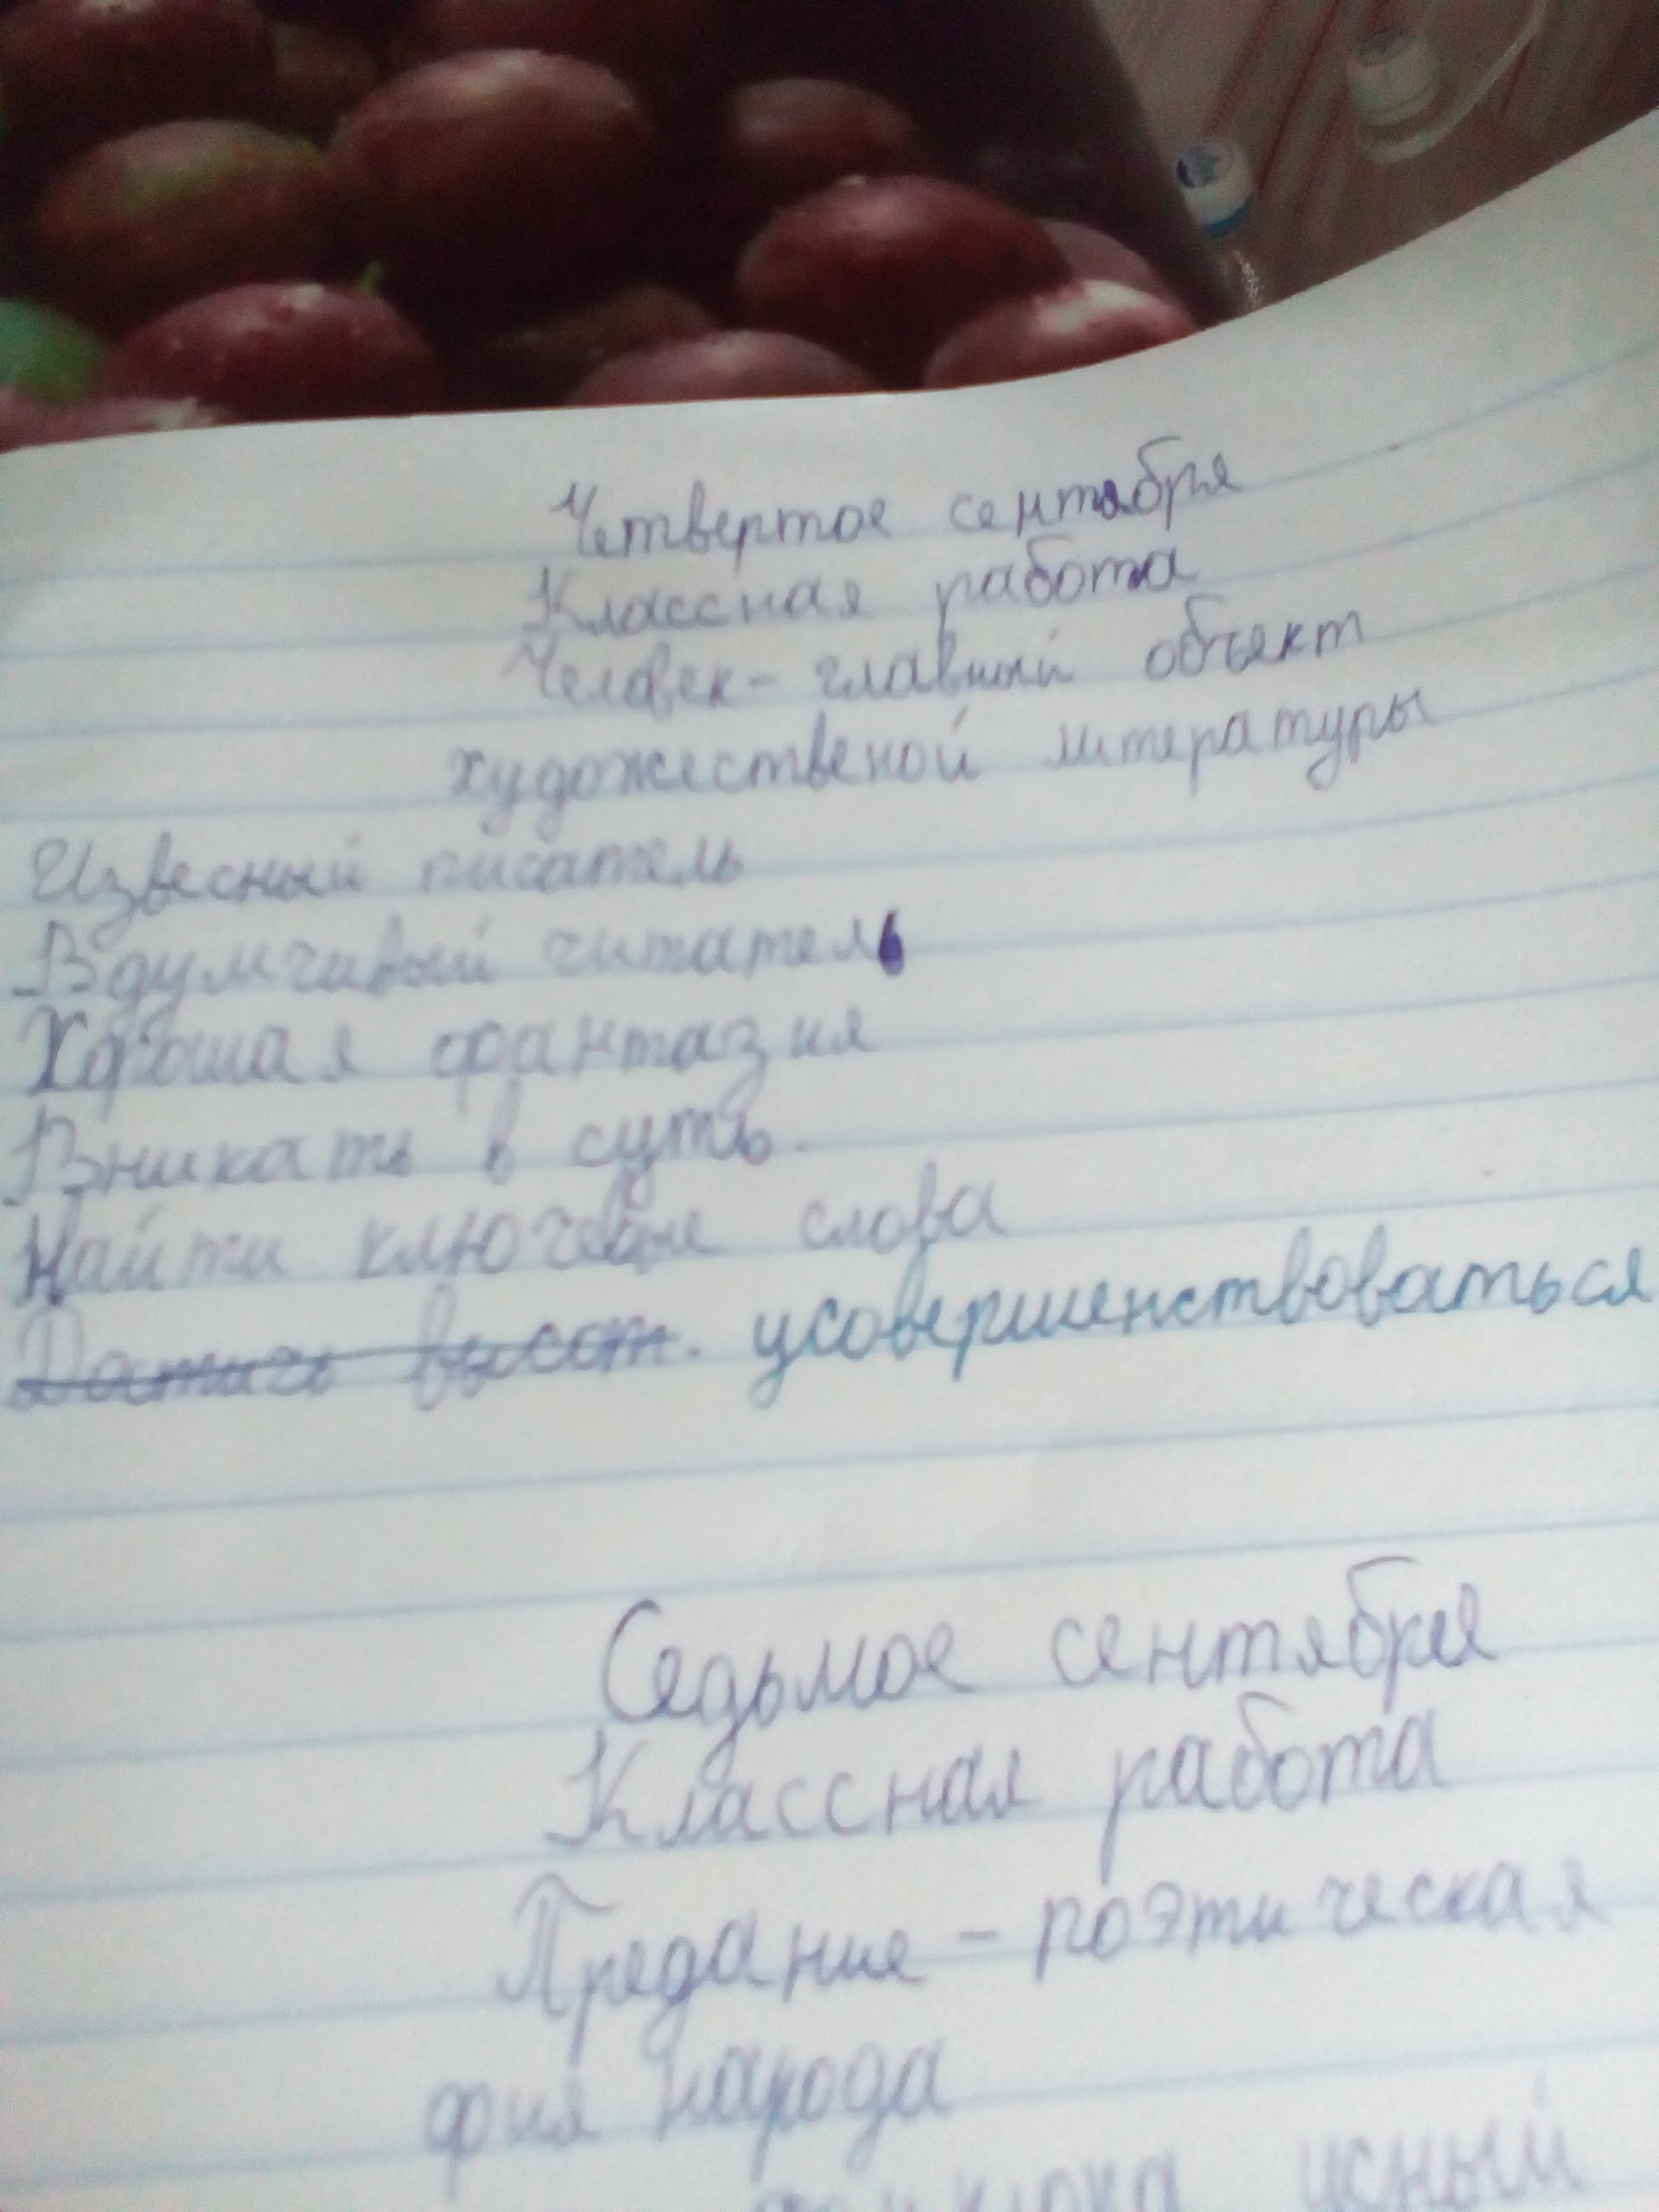 Четвертое сентября
Классная работа
Человек - главный объект
художественой литературы
Извесный писатель
Вдумчивый читатель
Хорошая фантазия
Вникать в суть.
Найти ключевые слова
усовершенствоваться
Седьмое сентября
Классная работа
Предание - поэтическая
фия народа
усный